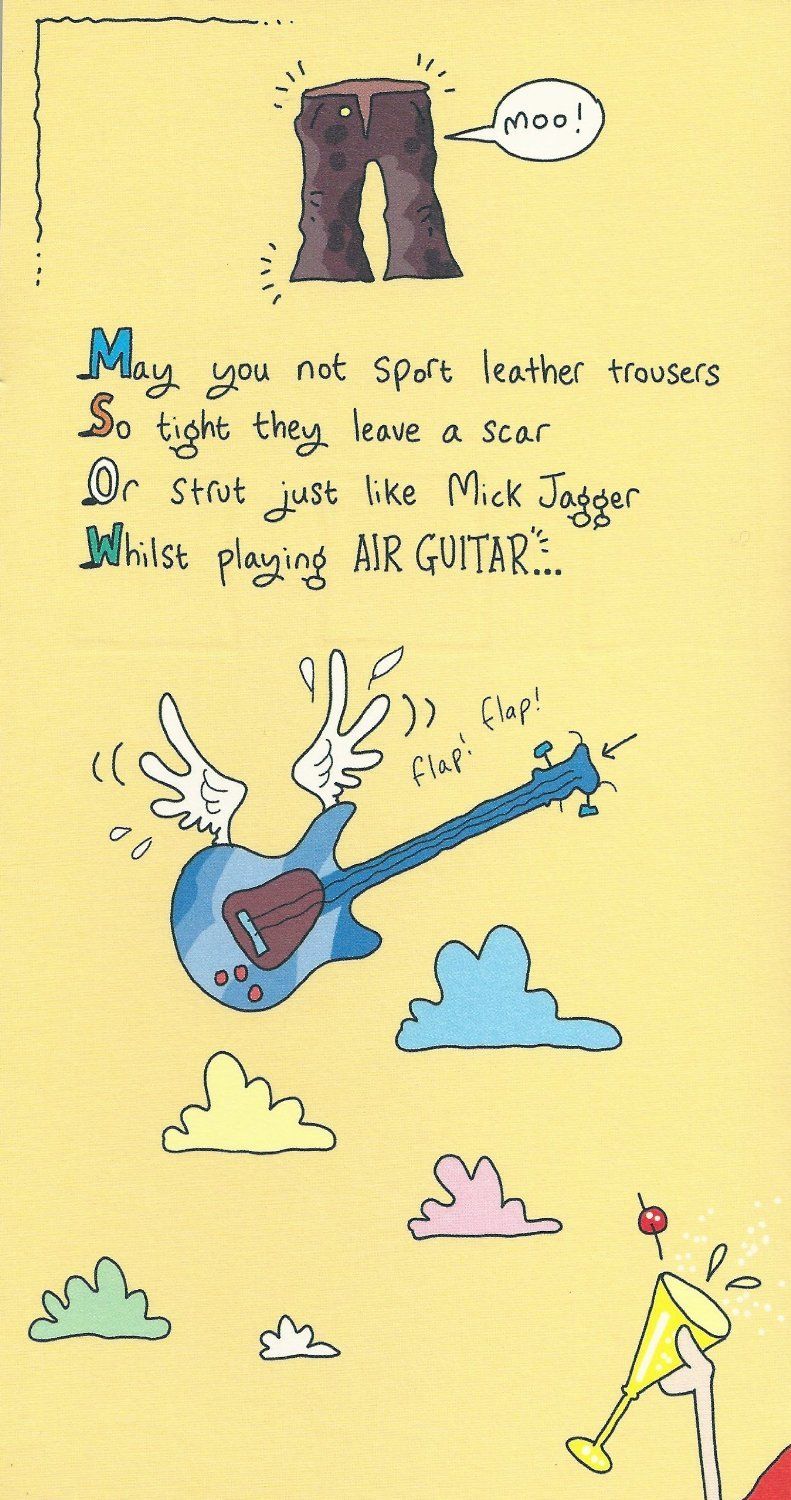 moo!
May you not sport leather trousers
So tight they leave a scar
Or strut just like Mick Jagger
Whilst playing AIR GUITAR...
flap! flap!